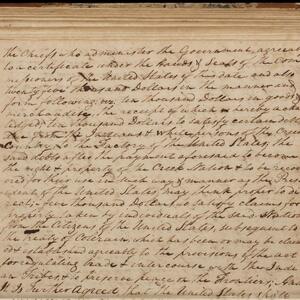 the Chiefs who administer the Government, agreeab
to a certificate under the Hands & Seals of the Com
issioners of the United States of this date and also
twenty five thousand Dollars in the manner and
form following; viz, ten thousand Dollars in goods &
merchandize, the receipt of which is hereby ackn
ledged; ten thousand Dollars to satisfy certain debts
due from the Indians & white persons of the Creek
Country to the Factory of the United States; the
said debts after the payment aforesaid to become
the right & property of the Creek Nation & to be recov
ered for their use in that way & manner as the Presi
dent of the United States may think proper to di
rect: five thousand Dollars to satisfy claims for
property taken by individuals of the said Nation
from the Citizens of the United States, subsequent to
the treaty of Colerain which has been or may be claim
ed established agreeably to the provisions of the act
for regulating trade & intercourse with the Indi
an tribes, & to preserve peace on the Frontiers;
It is Further Agreed that the United States